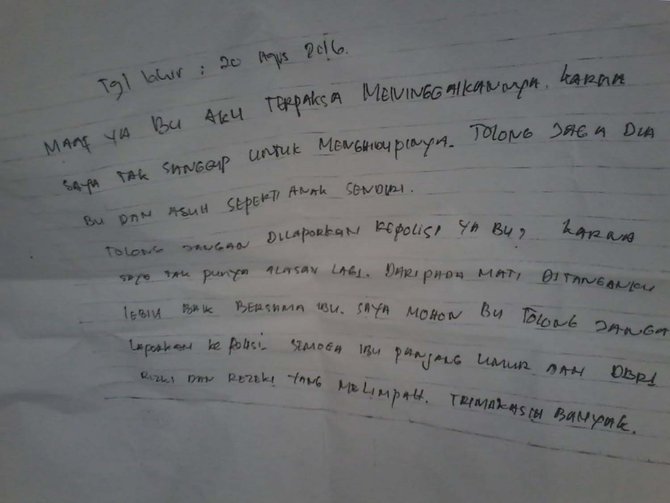 Tgl lahir : 20 Agus 2016.
MAAF YA BU AKU TERPAKSA MENINGGALKANNYA. KARNA
SAYA TAK SANGGUP UNTUK MENGHIDUPINYA. TOLONG JAGA DIA
BU DAN ASUH SEPERTI ANAK SENDIRI.
TOLONG JANGAN DILAPORKAN KEPOLISI YA BU, KARNA
SAYA TAK PUNYA ALASAN LAGI. DARIPADA MATI DITANGANKU
LEBIH BAIK BERSAMA IBU. SAYA MOHON BU TOLONG JANGA
LAPORKAN KE POLISI SEMOGA IBU PANJANG UMUR DAN DBRI
RIZKI DAN REZEKI YANG MELIMPAH. TRIMAKASIH BANYAK.